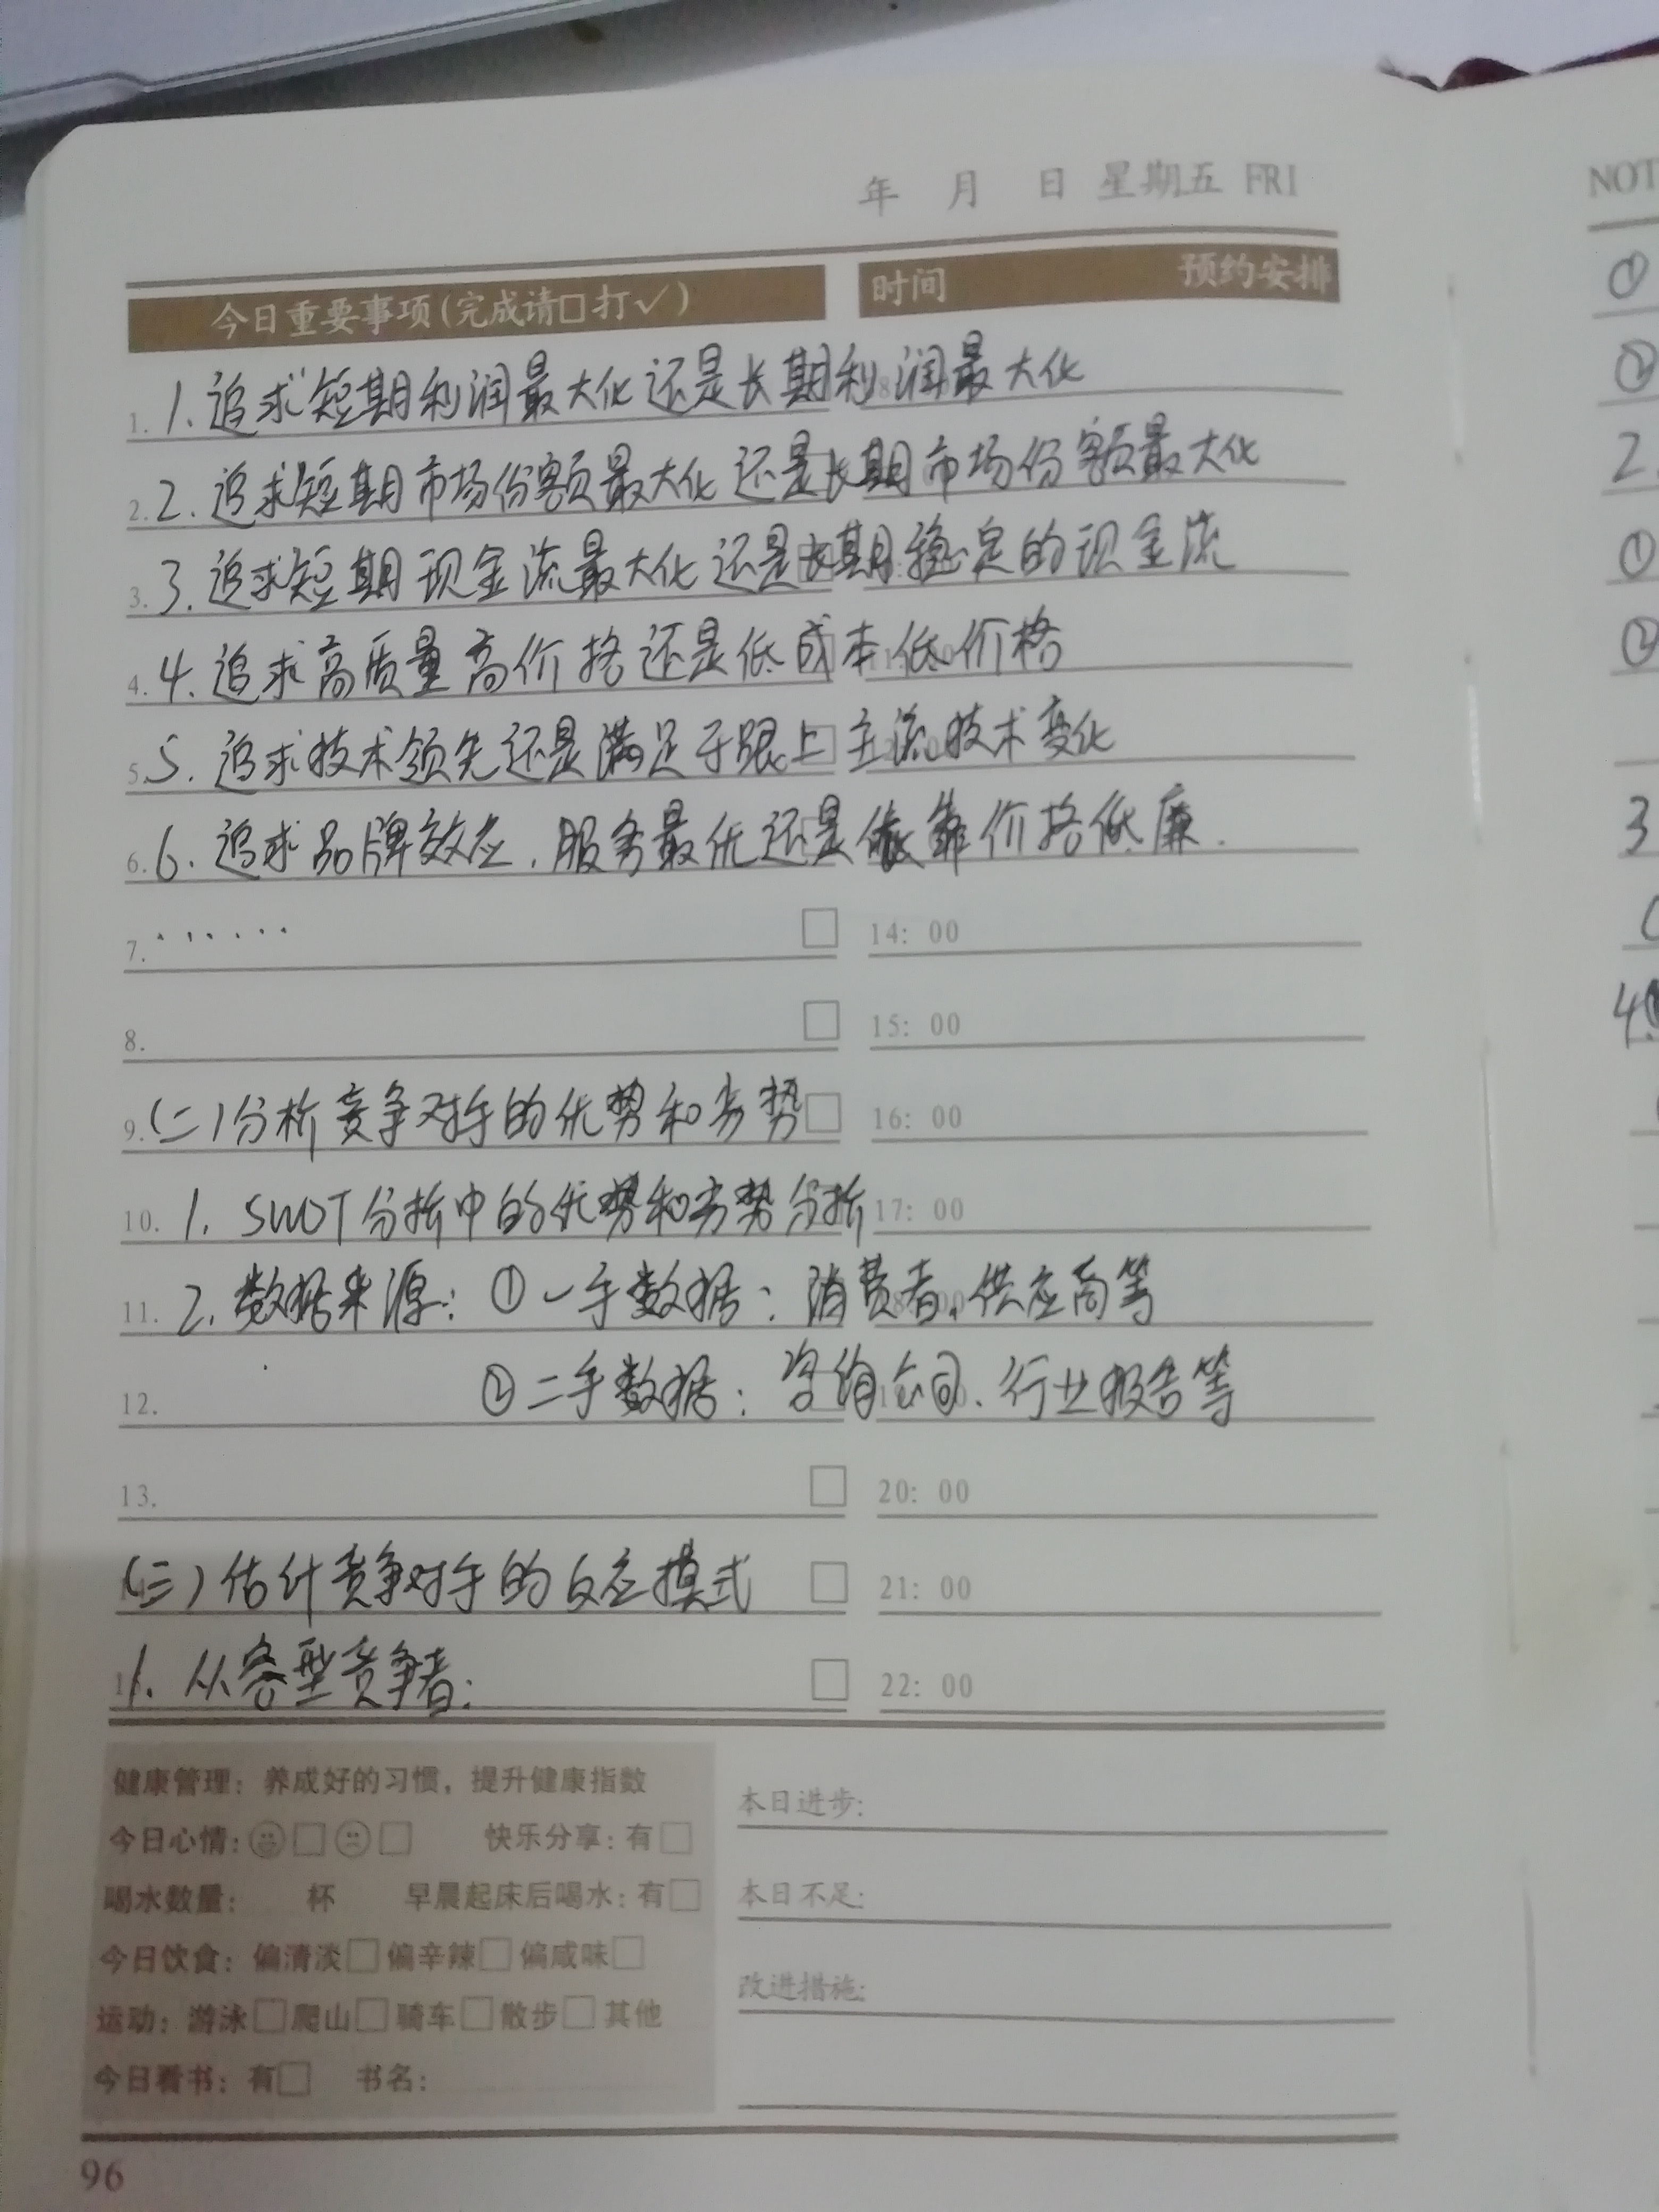 年 月 日 星期五 FRI
今日重要事项(完成请□打✓) 时间 预约安排
1. 1. 追求短期利润最大化还是长期利润最大化
2. 2. 追求短期市场份额最大化还是长期市场份额最大化
3. 3. 追求短期现金流最大化还是长期稳定的现金流
4. 4. 追求高质量高价格还是低成本低价格
5. 5. 追求技术领先还是满足于跟上主流技术变化
6. 6. 追求品牌效应、服务最优还是依靠价格低廉.
7. ······ □ 14: 00
8. □ 15: 00
9. (二)分析竞争对手的优势和劣势 □ 16: 00
10. 1. SWOT分析中的优势和劣势分析 17: 00
11. 2. 数据来源: ①一手数据: 消费者、供应商等
12. ②二手数据: 咨询公司、行业报告等
13. □ 20: 00
(三)估计竞争对手的反应模式 □ 21: 00
1. 从容型竞争者: □ 22: 00
健康管理: 养成好的习惯, 提升健康指数
今日心情: □ □ 快乐分享: 有□
喝水数量: 杯 早晨起床后喝水: 有□
今日饮食: 偏清淡□ 偏辛辣□ 偏咸味□
运动: 游泳□ 爬山□ 骑车□ 散步□ 其他
今日看书: 有□ 书名:
本日进步:
本日不足:
改进措施:
96
NOT
①
②
2.
①
②
3
4.